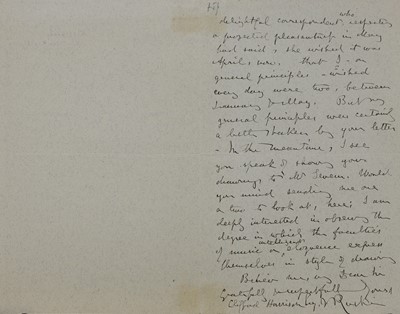 who
delightful correspondent, respecting
a projected pleasantness in May
had said, she wished it was
April, now. that I - on
general principles - wished
every day were two, between
January & May. But my
general principles were certainly
a little shaken by your letter
- In the meantime, I see
you speak of showing your
drawings to Mr Severn. Would
you mind sending me one
or two to look at, here; I am
deeply interested in observing the
degree in which the faculties
of music or intelligent eloquence express
themselves in style of drawing
Believe me, my Dear Sir
gratefully & respectfully Yours
Clifford Harrison J Ruskin